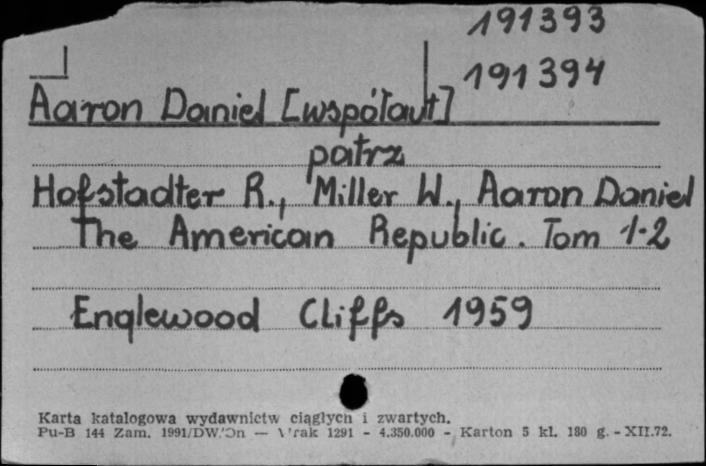 191393
191394
Aaron Daniel [współaut]
patrz
Hofstadter R., Miller W., Aaron Daniel
The American Republic. Tom 1-2
Englewood Cliffs 1959
Karta katalogowa wydawnictw ciągłych i zwartych.
Pu-B 144 Zam. 1991/DW. — 1291 - 4.350.000 - Karton 5 kl. 180 g. - XII.72.